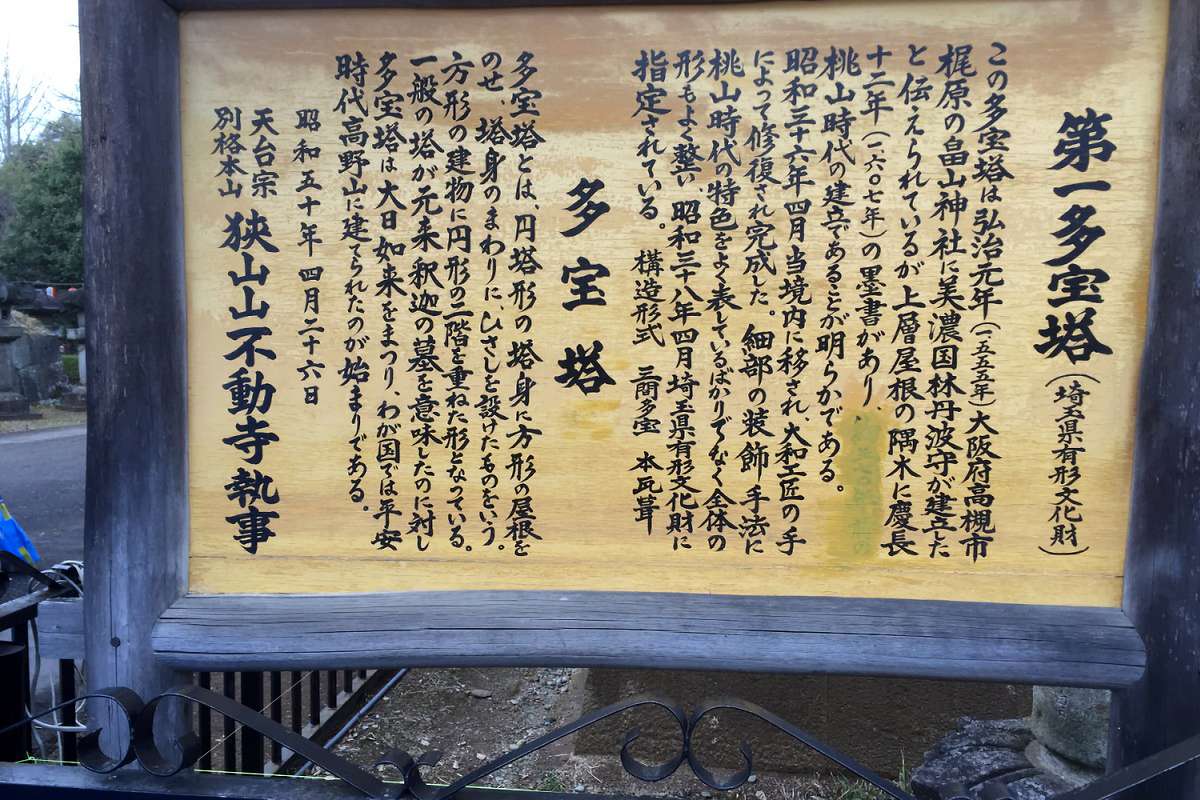 第一多宝塔(埼玉県有形文化財)
この多宝塔は弘治元年(一五五五年)大阪府高槻市
梶原の畠山神社に美濃国林丹波守が建立した
と伝えられているが上層屋根の隅木に慶長
十二年(一六〇七年)の墨書があり、
桃山時代の建立であることが明らかである。
昭和三十六年四月当境内に移され、大和工匠の手
によって修復され完成した。細部の装飾手法に
桃山時代の特色をよく表しているばかりでなく全体の
形もよく整い、昭和三十八年四月埼玉県有形文化財に
指定されている。 構造形式 三間多宝 本瓦葺
多宝塔
多宝塔とは、円塔形の塔身に方形の屋根を
のせ、塔身のまわりに、ひさしを設けたものをいう。
方形の建物に円形の二階を重ねた形となっている。
一般の塔が元来釈迦の墓を意味したのに対し
多宝塔は大日如来をまつり、わが国では平安
時代高野山に建てられたのが始まりである。
昭和五十年四月二十六日
天台宗
別格本山 狭山山不動寺執事